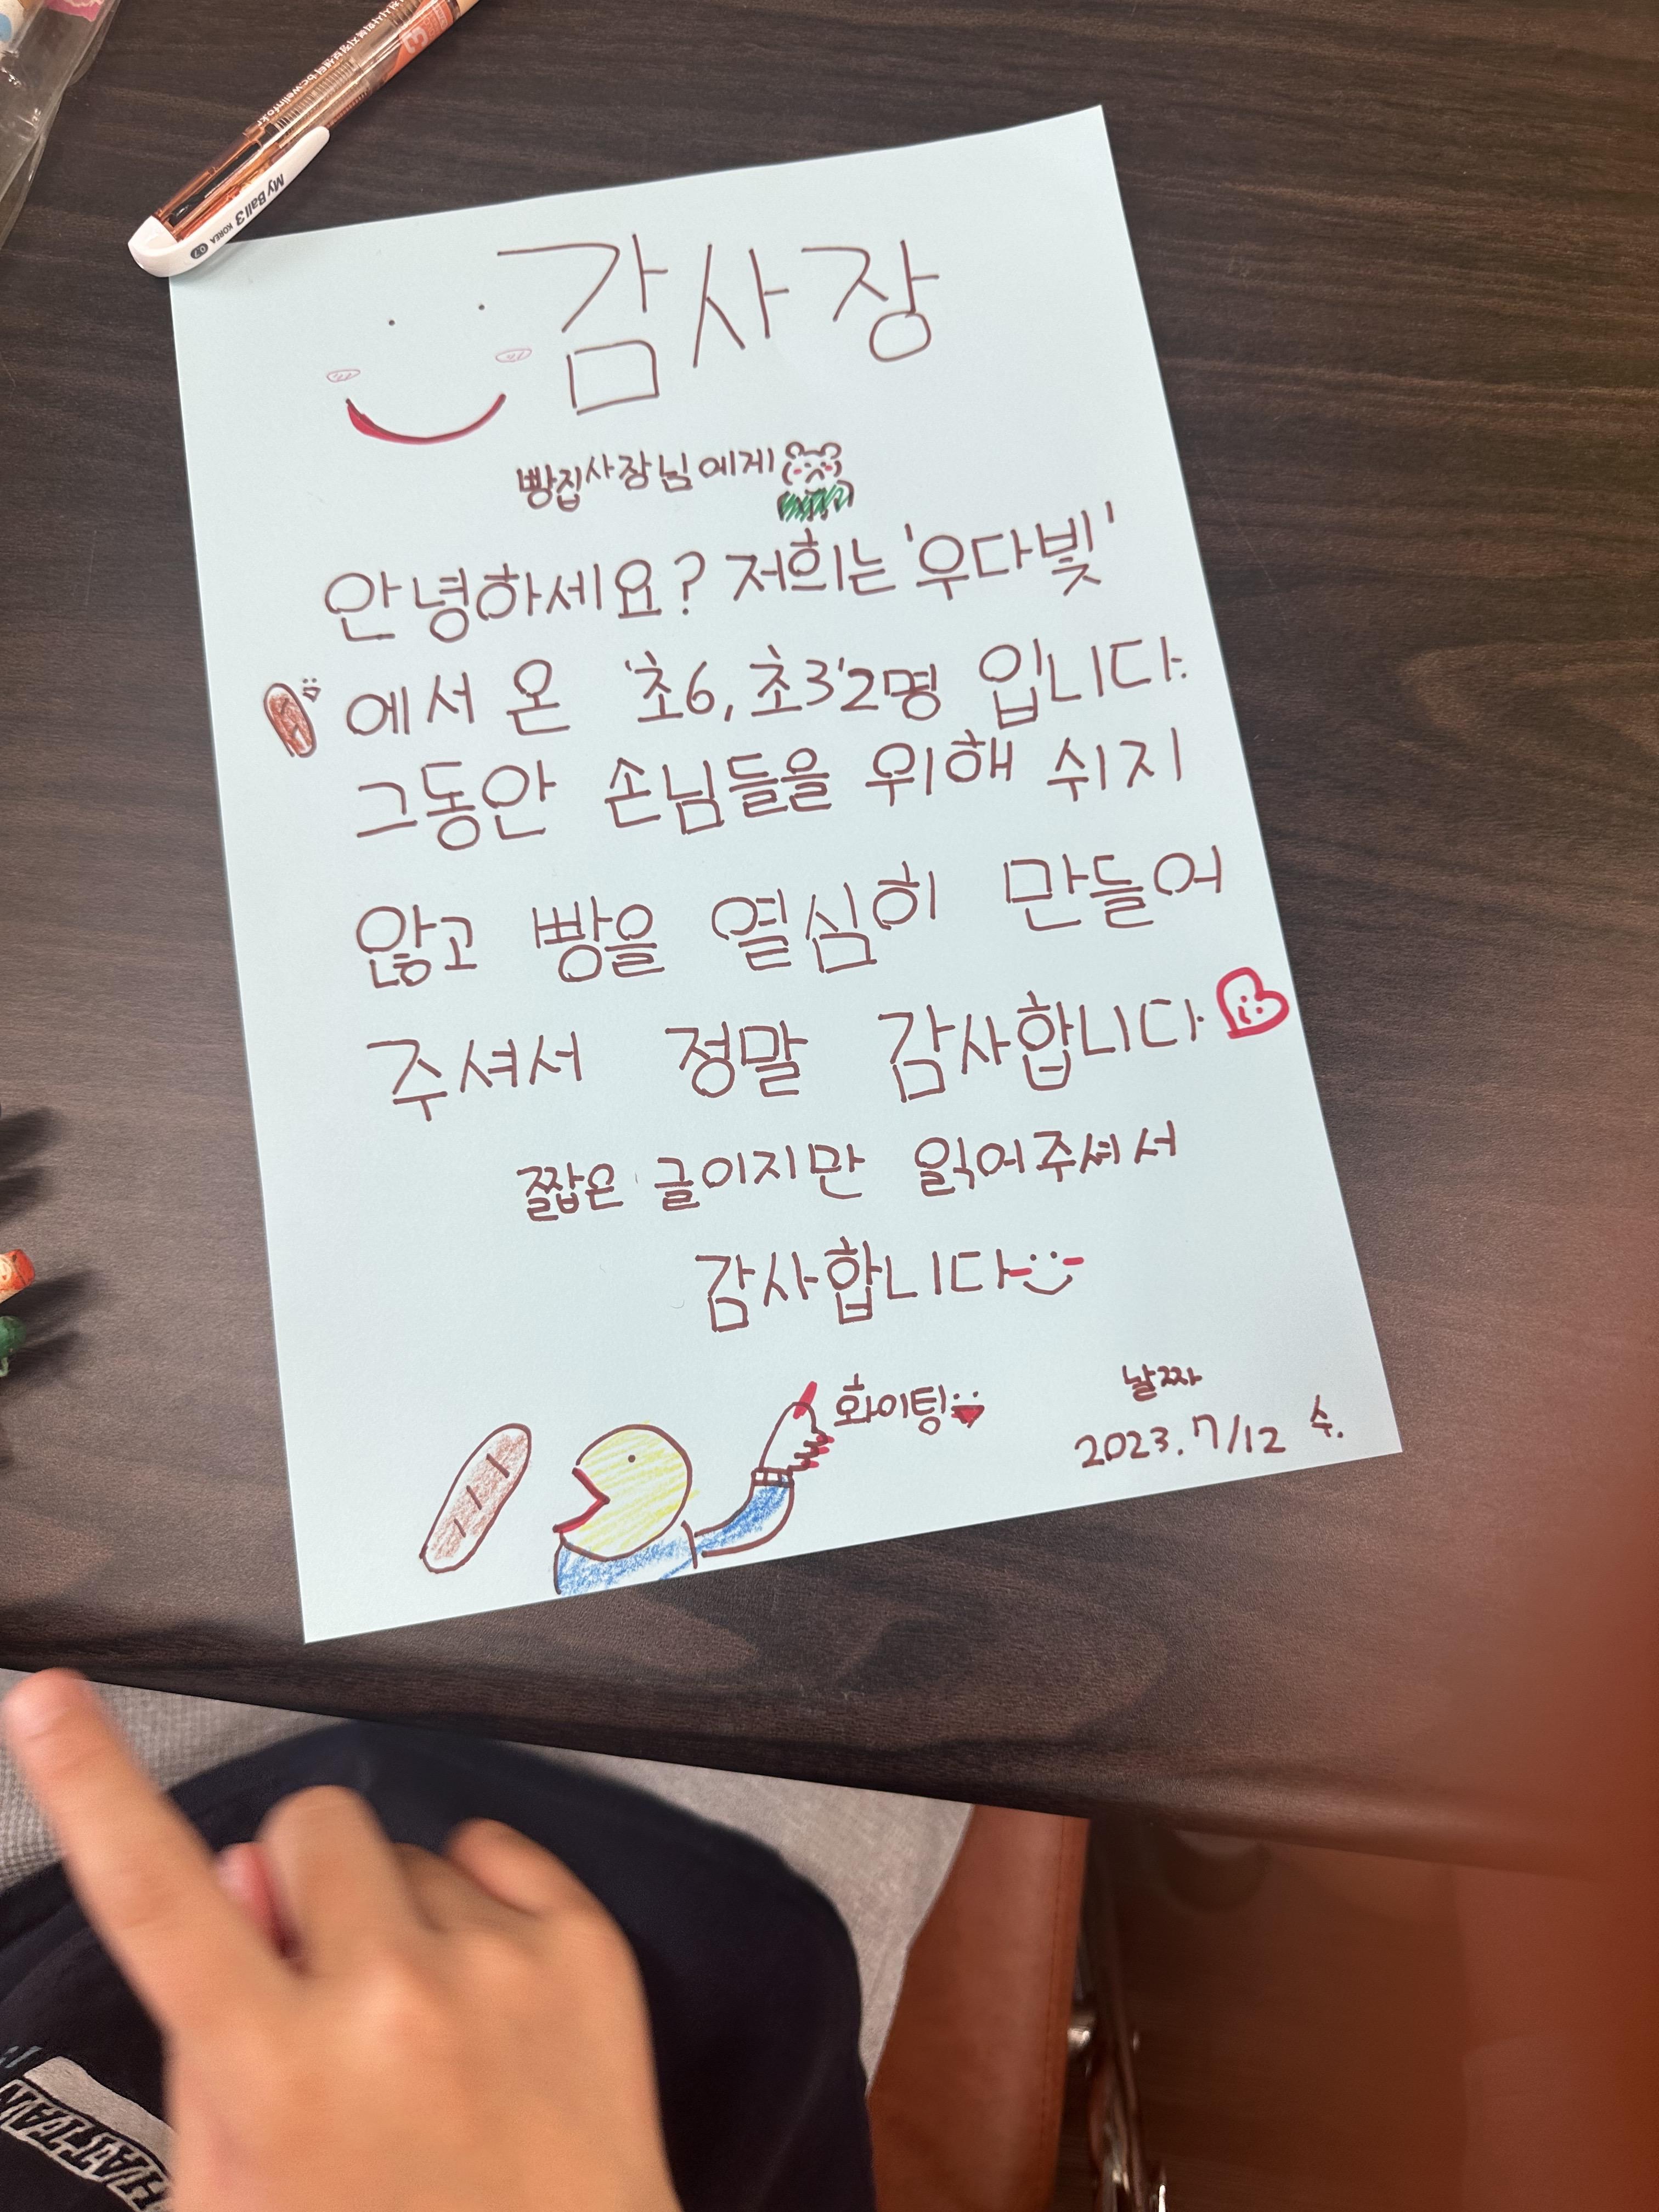 My Ball 3 KOREA 0.7
감사장
빵집사장님에게
안녕하세요? 저희는 '우다빛'
에서 온 '초6, 초3' 2명 입니다.
그동안 손님들을 위해 쉬지
않고 빵을 열심히 만들어
주셔서 정말 감사합니다
짧은 글이지만 읽어주셔서
감사합니다
화이팅
날짜
2023. 7/12 수.